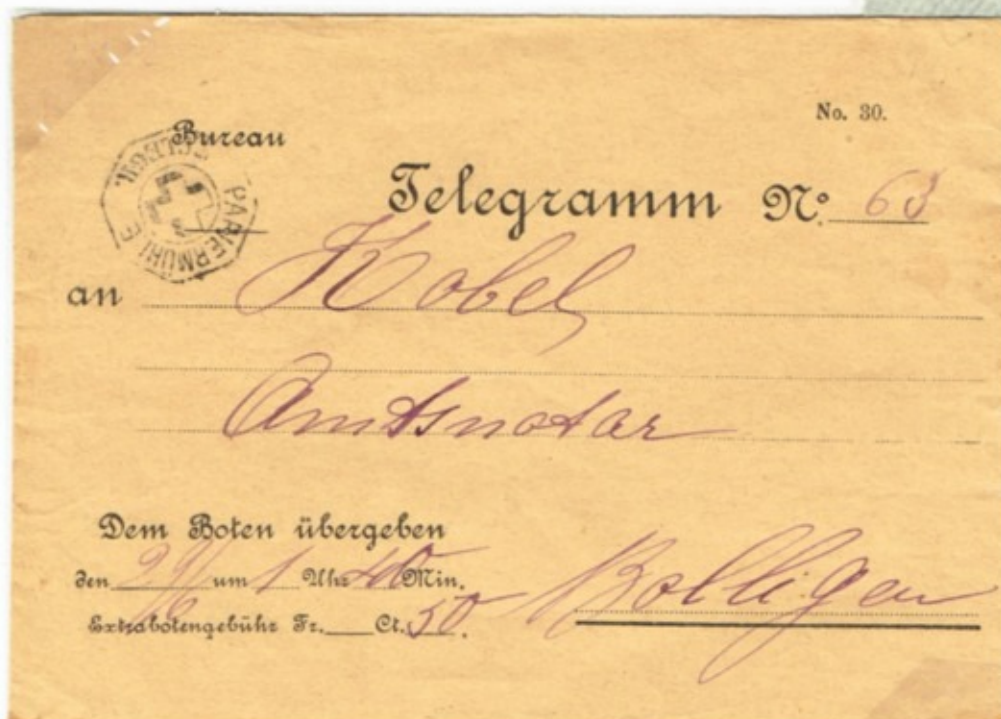 No. 30.
Bureau
TELEGR.
PAPIERMÜHLE
Telegramm No. 63
an Kobel
Amtsnotar
Dem Boten übergeben
den 29/6 um 1 Uhr 40 Min.
Extrabotengebühr Fr. Ct. 50.
Bolligen